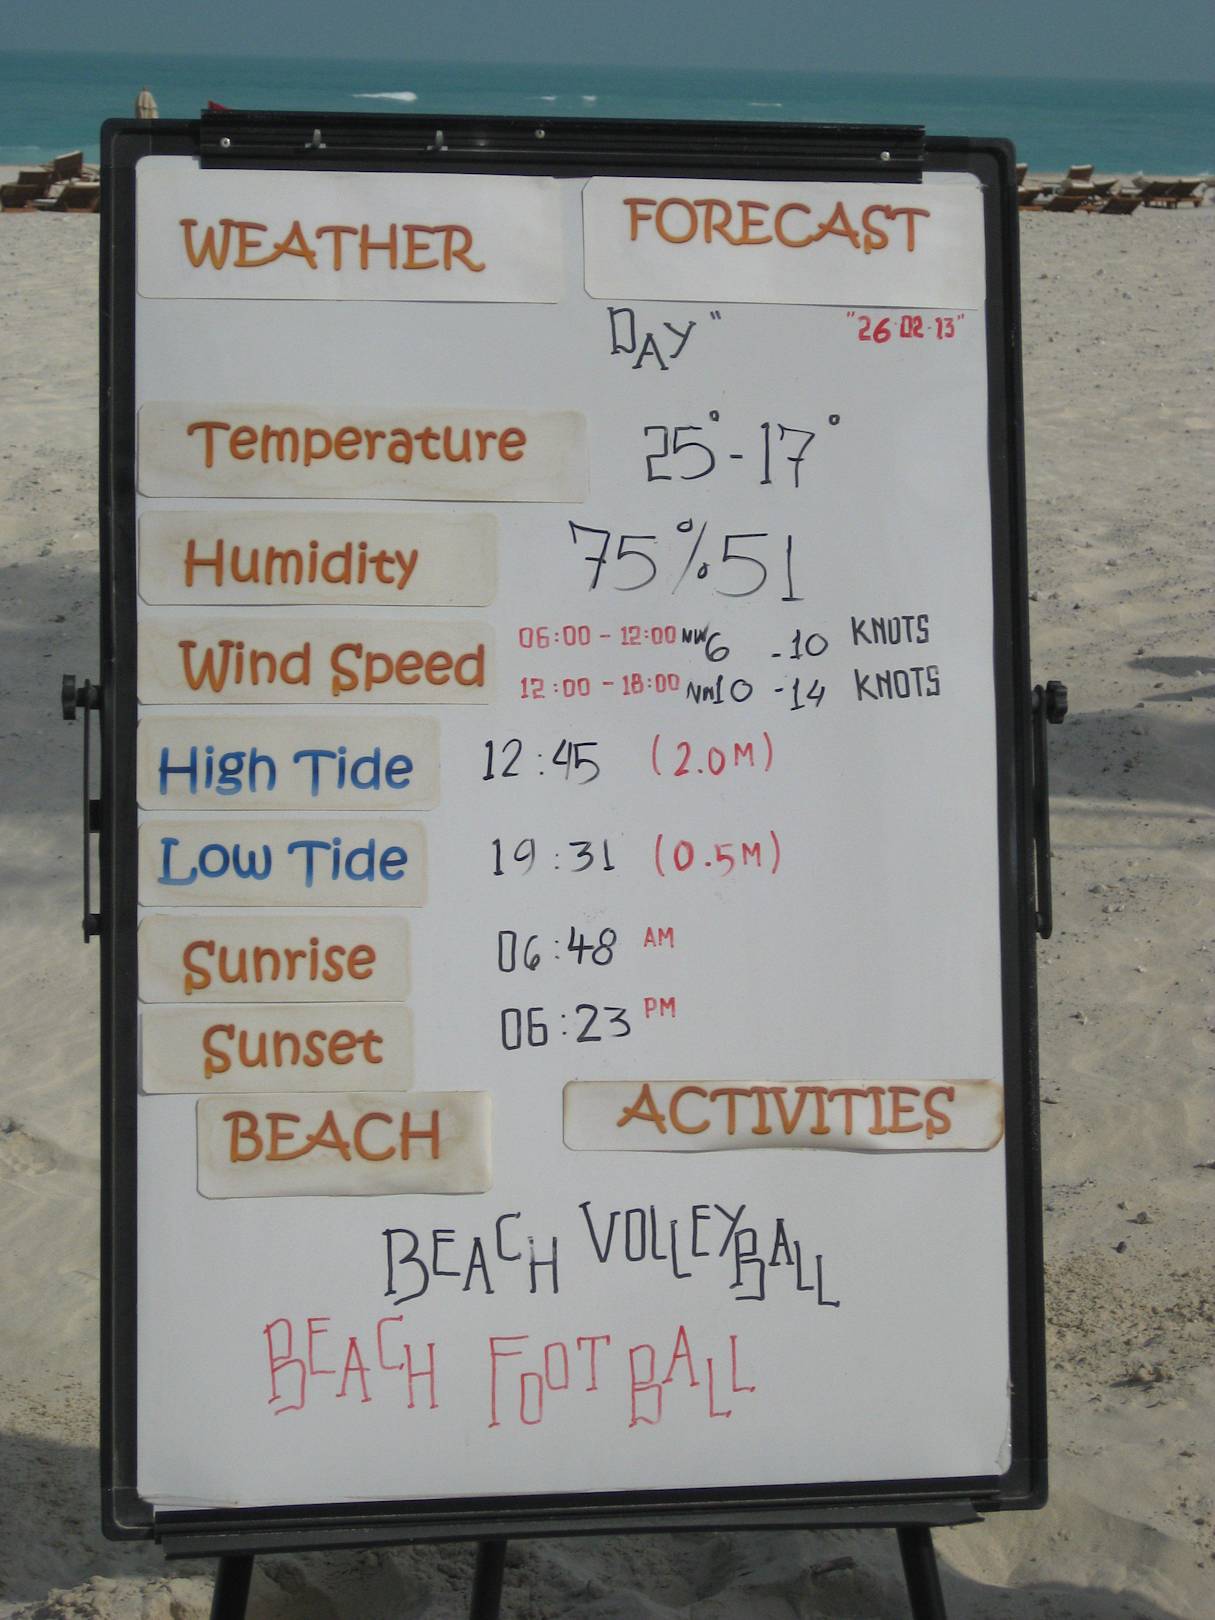 WEATHER FORECAST
DAY" "26·02·13"
Temperature 25° - 17°
Humidity 75%51
Wind Speed 06:00 - 12:00 NW 6 -10 KNOTS
12:00 - 18:00 NW 10 -14 KNOTS
High Tide 12:45 (2.0M)
Low Tide 19:31 (0.5M)
Sunrise 06:48 AM
Sunset 06:23 PM
BEACH ACTIVITIES
BEACH VOLLEYBALL
BEACH FOOTBALL